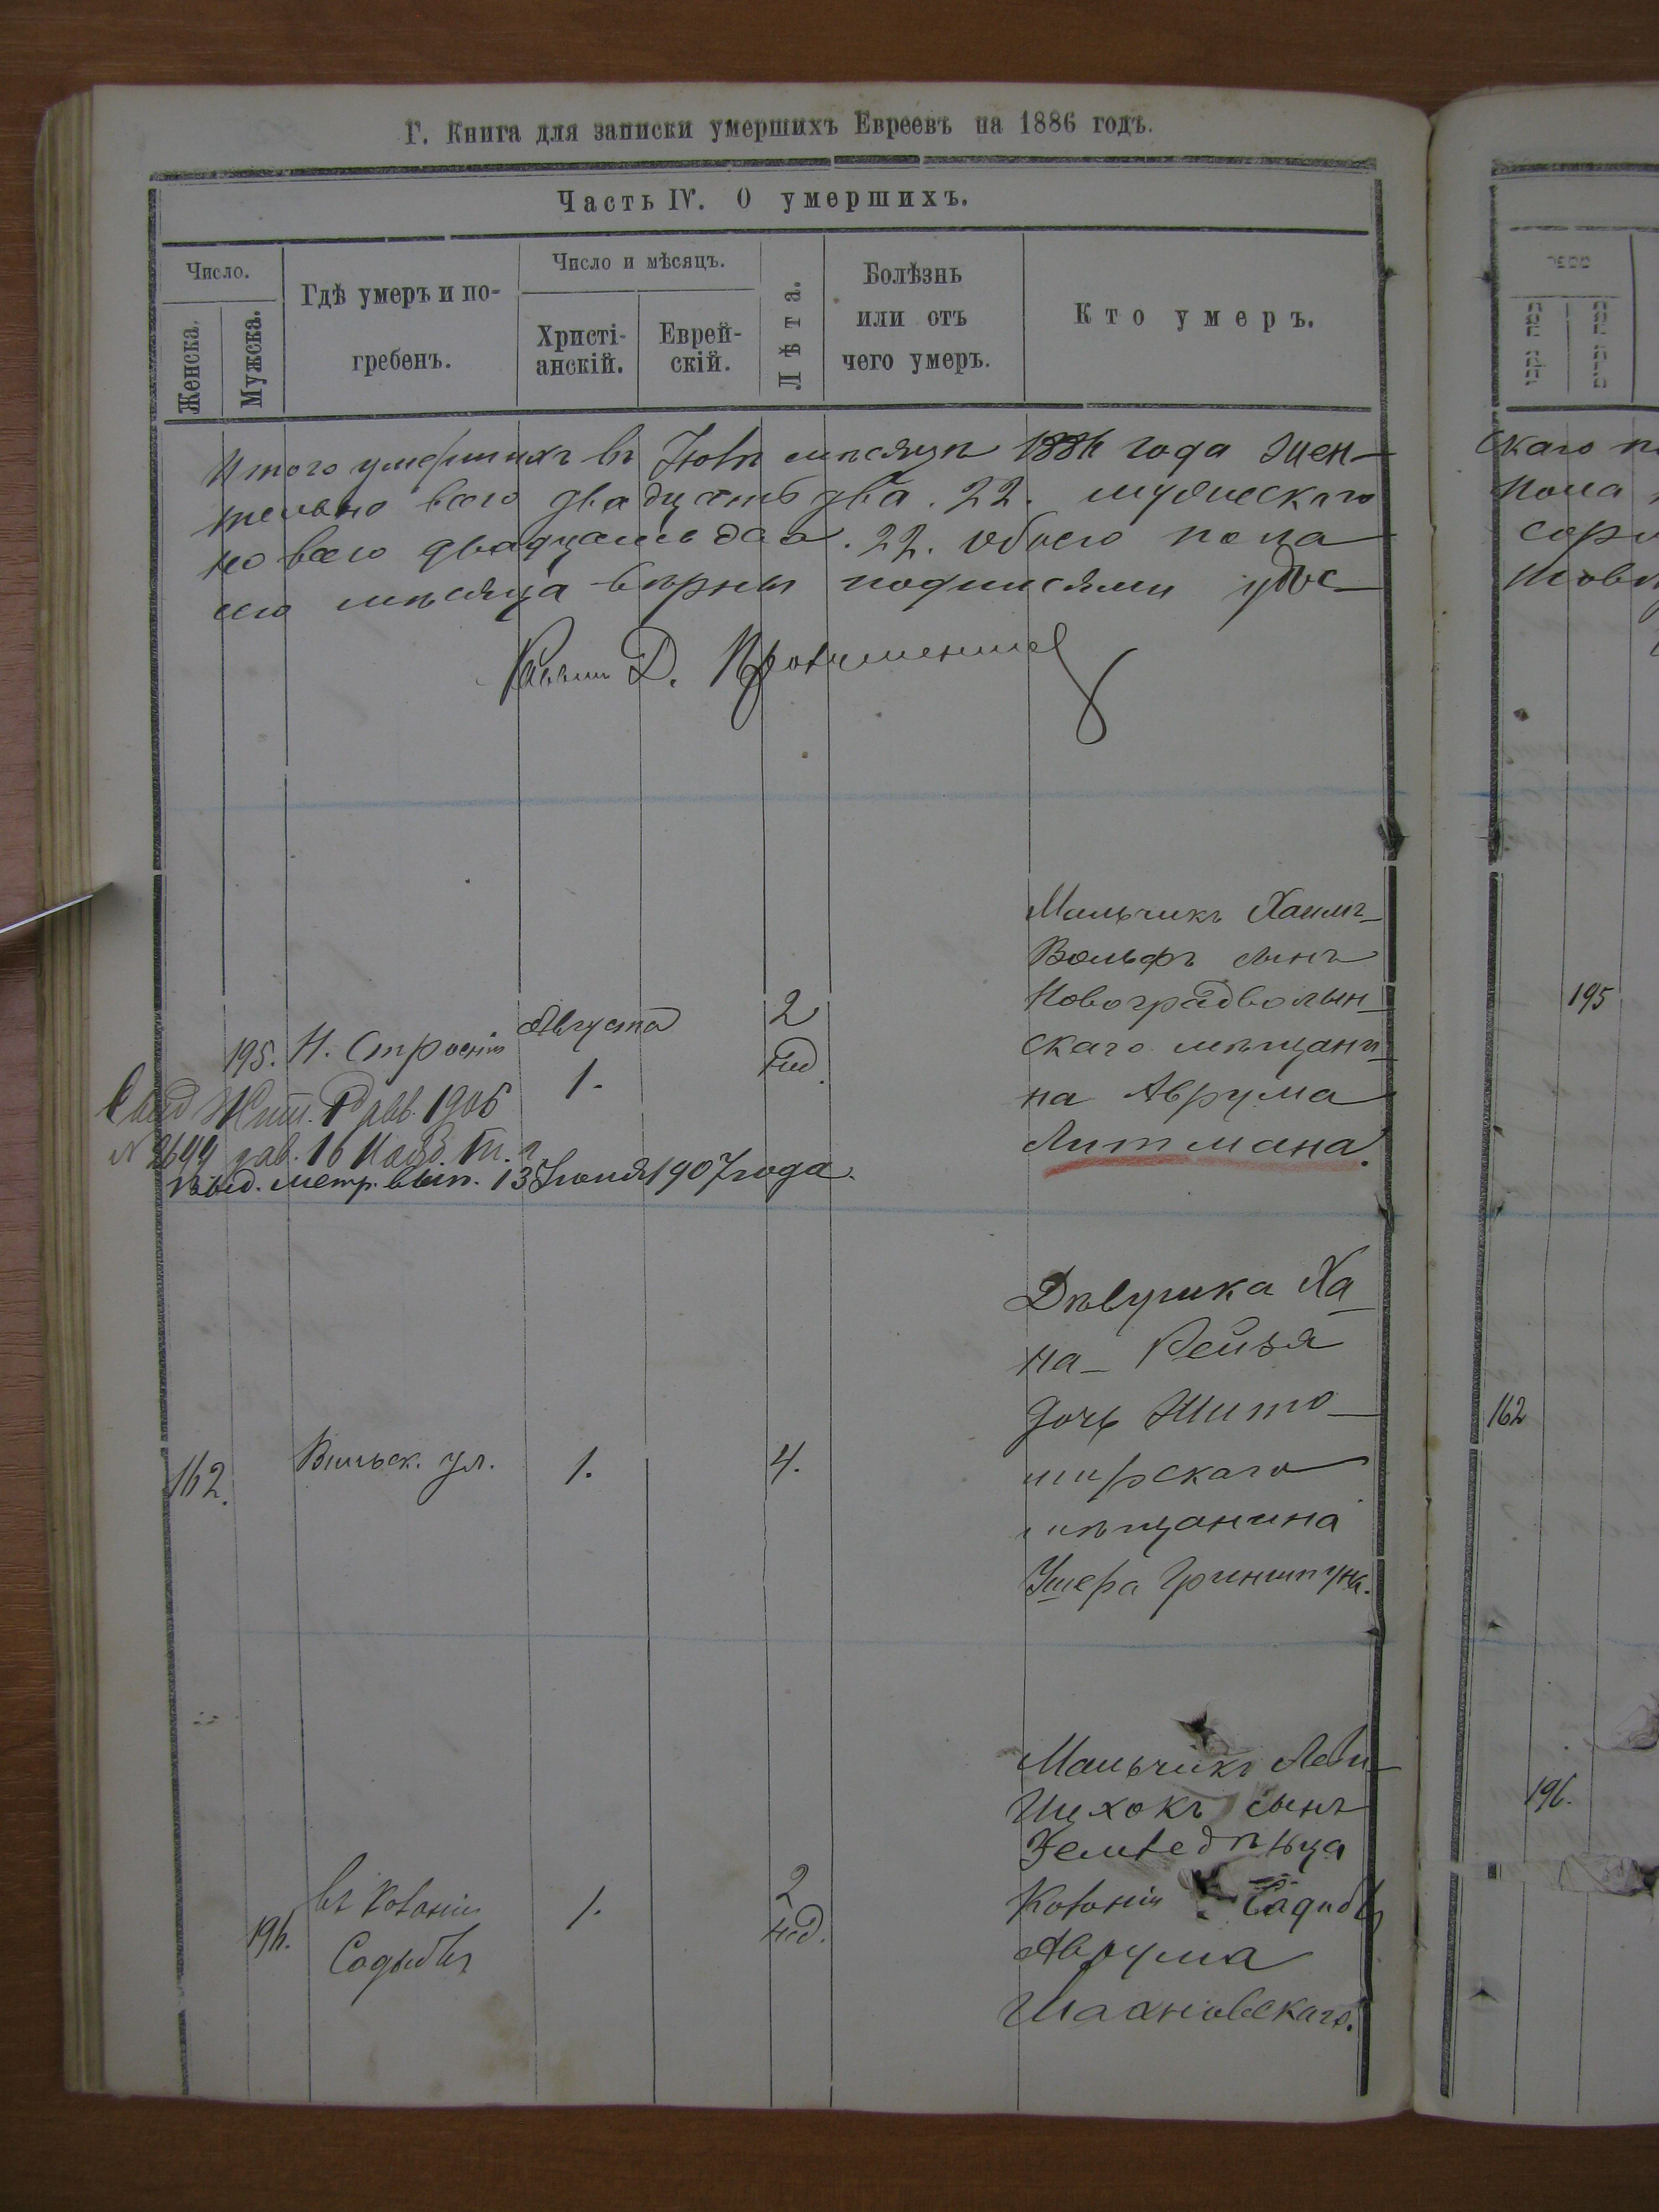 Г. Книга для записки умершихъ Евреевъ на 1886 годъ.
Часть IV. О умершихъ.
Число.
Женска.
Мужска.
Гдѣ умеръ и по-
гребенъ.
Число и мѣсяцъ.
Христі-
анскій.
Еврей-
скій.
Лѣта.
Болѣзнь
или отъ
чего умеръ.
Кто умеръ.
Итого умершихъ въ Юлѣ мѣсяцѣ 1886 года жен-
всего двадцать два. 22. мужескаго
всего двадцать два. 22. обоего пола
сего мѣсяца вѣрны подписями удос-
Раввинъ Д.
195. Н. Строенія
Августа
1.
2
нед.
Мальчикъ Хаимъ-
Вольфъ сынъ
Новоградволын-
скаго мѣщани-
на Аврума
Литмана.
Рав. 1906
№ 2699
Выд. метр. вып. 13 Іюня 1907 года.
162.
Вильск. ул.
1.
4.
Дѣвушка Ха-
на-Рейзя
дочь Жито-
мирскаго
мѣщанина
Ушера Гриншпуна.
196.
въ Колоніи
1.
2
нед.
Мальчикъ Лейб-
Ицхокъ сынъ
Колоніи
Аврума
Шахновскаго.
скаго
пола
195
162
196.